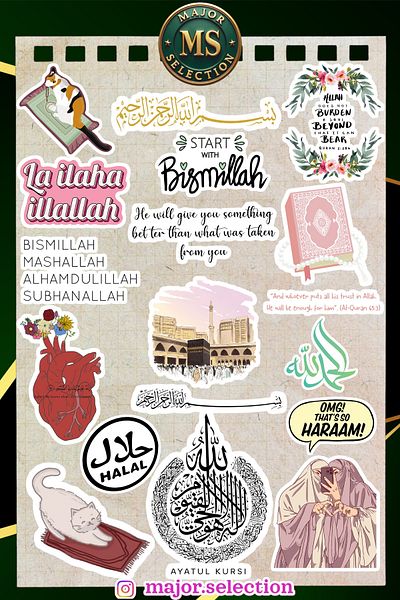 MAJOR
MS
SELECTION
بسم الله الرحمن الرحيم
ALLAH
DOES NOT
BURDEN
A SOUL
BEYOND
THAT IT CAN
BEAR
QURAN 2:286
START
WITH
Bismillah
La ilaha
illallah
He will give you something
better than what was taken
from you
BISMILLAH
MASHALLAH
ALHAMDULILLAH
SUBHANALLAH
"And whoever puts all his trust in Allah,
He will be enough for him". (Al-Quran 65:3)
الحمد لله
بسم الله الرحمن الرحيم
OMG!
THAT'S SO
HARAAM!
حلال
HALAL
AYATUL KURSI
major.selection